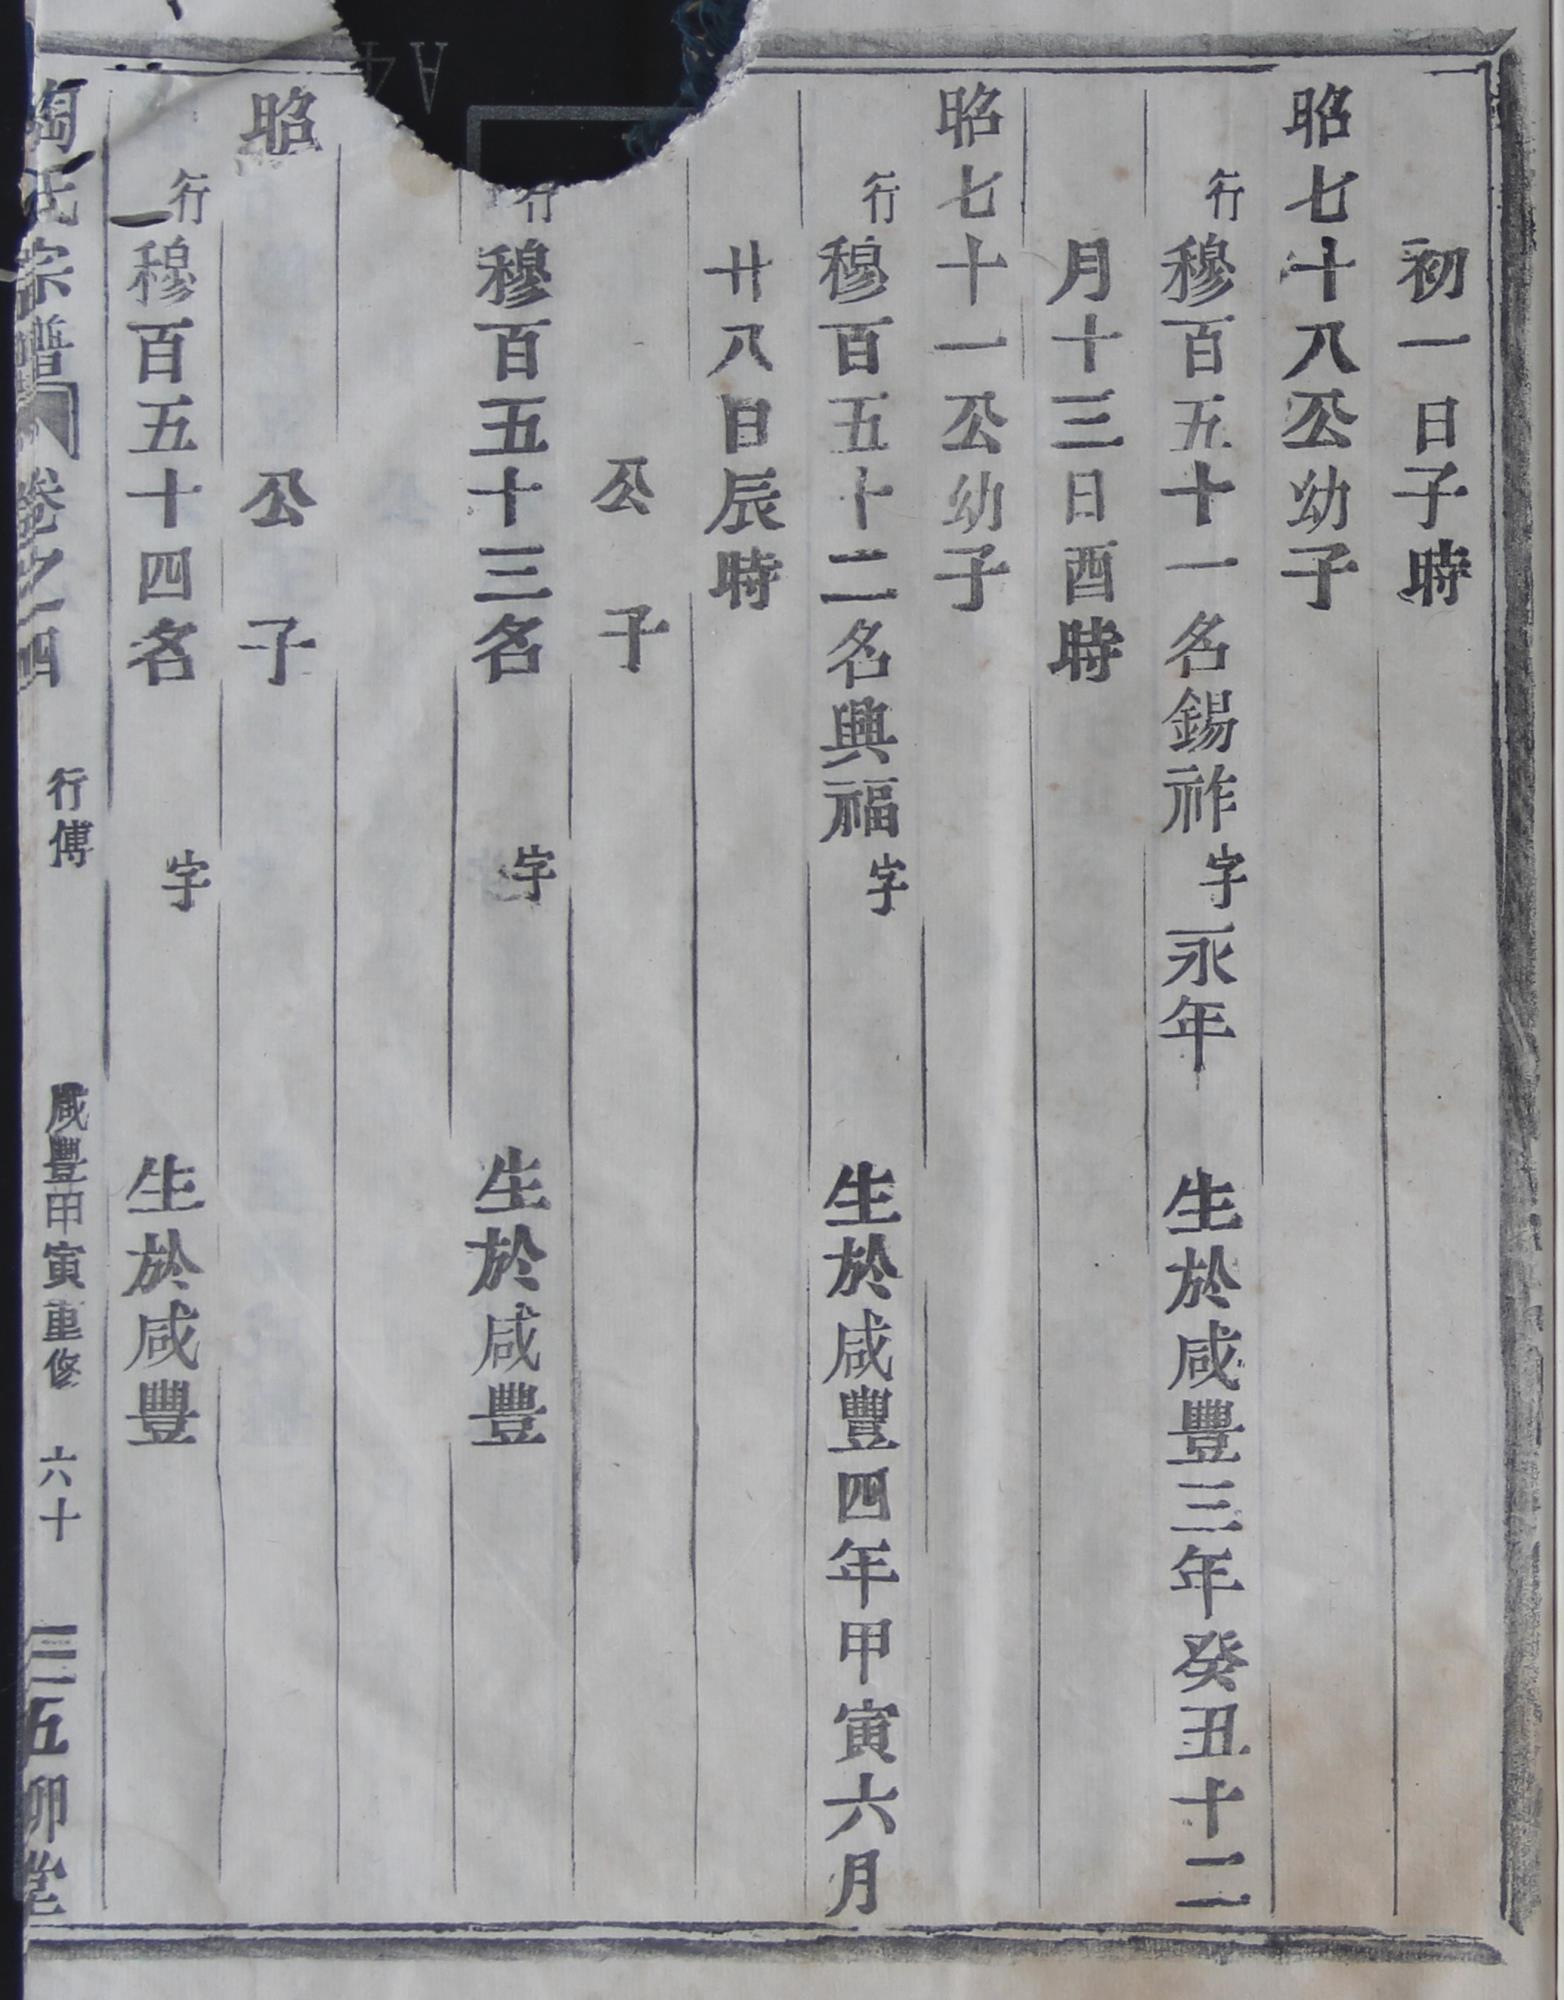 初一日子時
昭七十八公幼子
行穆百五十一名錫祚字永年 生於咸豐三年癸丑十二
月十三日酉時
昭七十一公幼子
行穆百五十二名興福字 生於咸豐四年甲寅六月
廿八日辰時
公 子
行穆百五十三名 字 生於咸豐
昭 公 子
行穆百五十四名 字 生於咸豐
陶氏宗譜 卷之四 行傳 咸豐甲寅重修 六十 五柳堂
A4